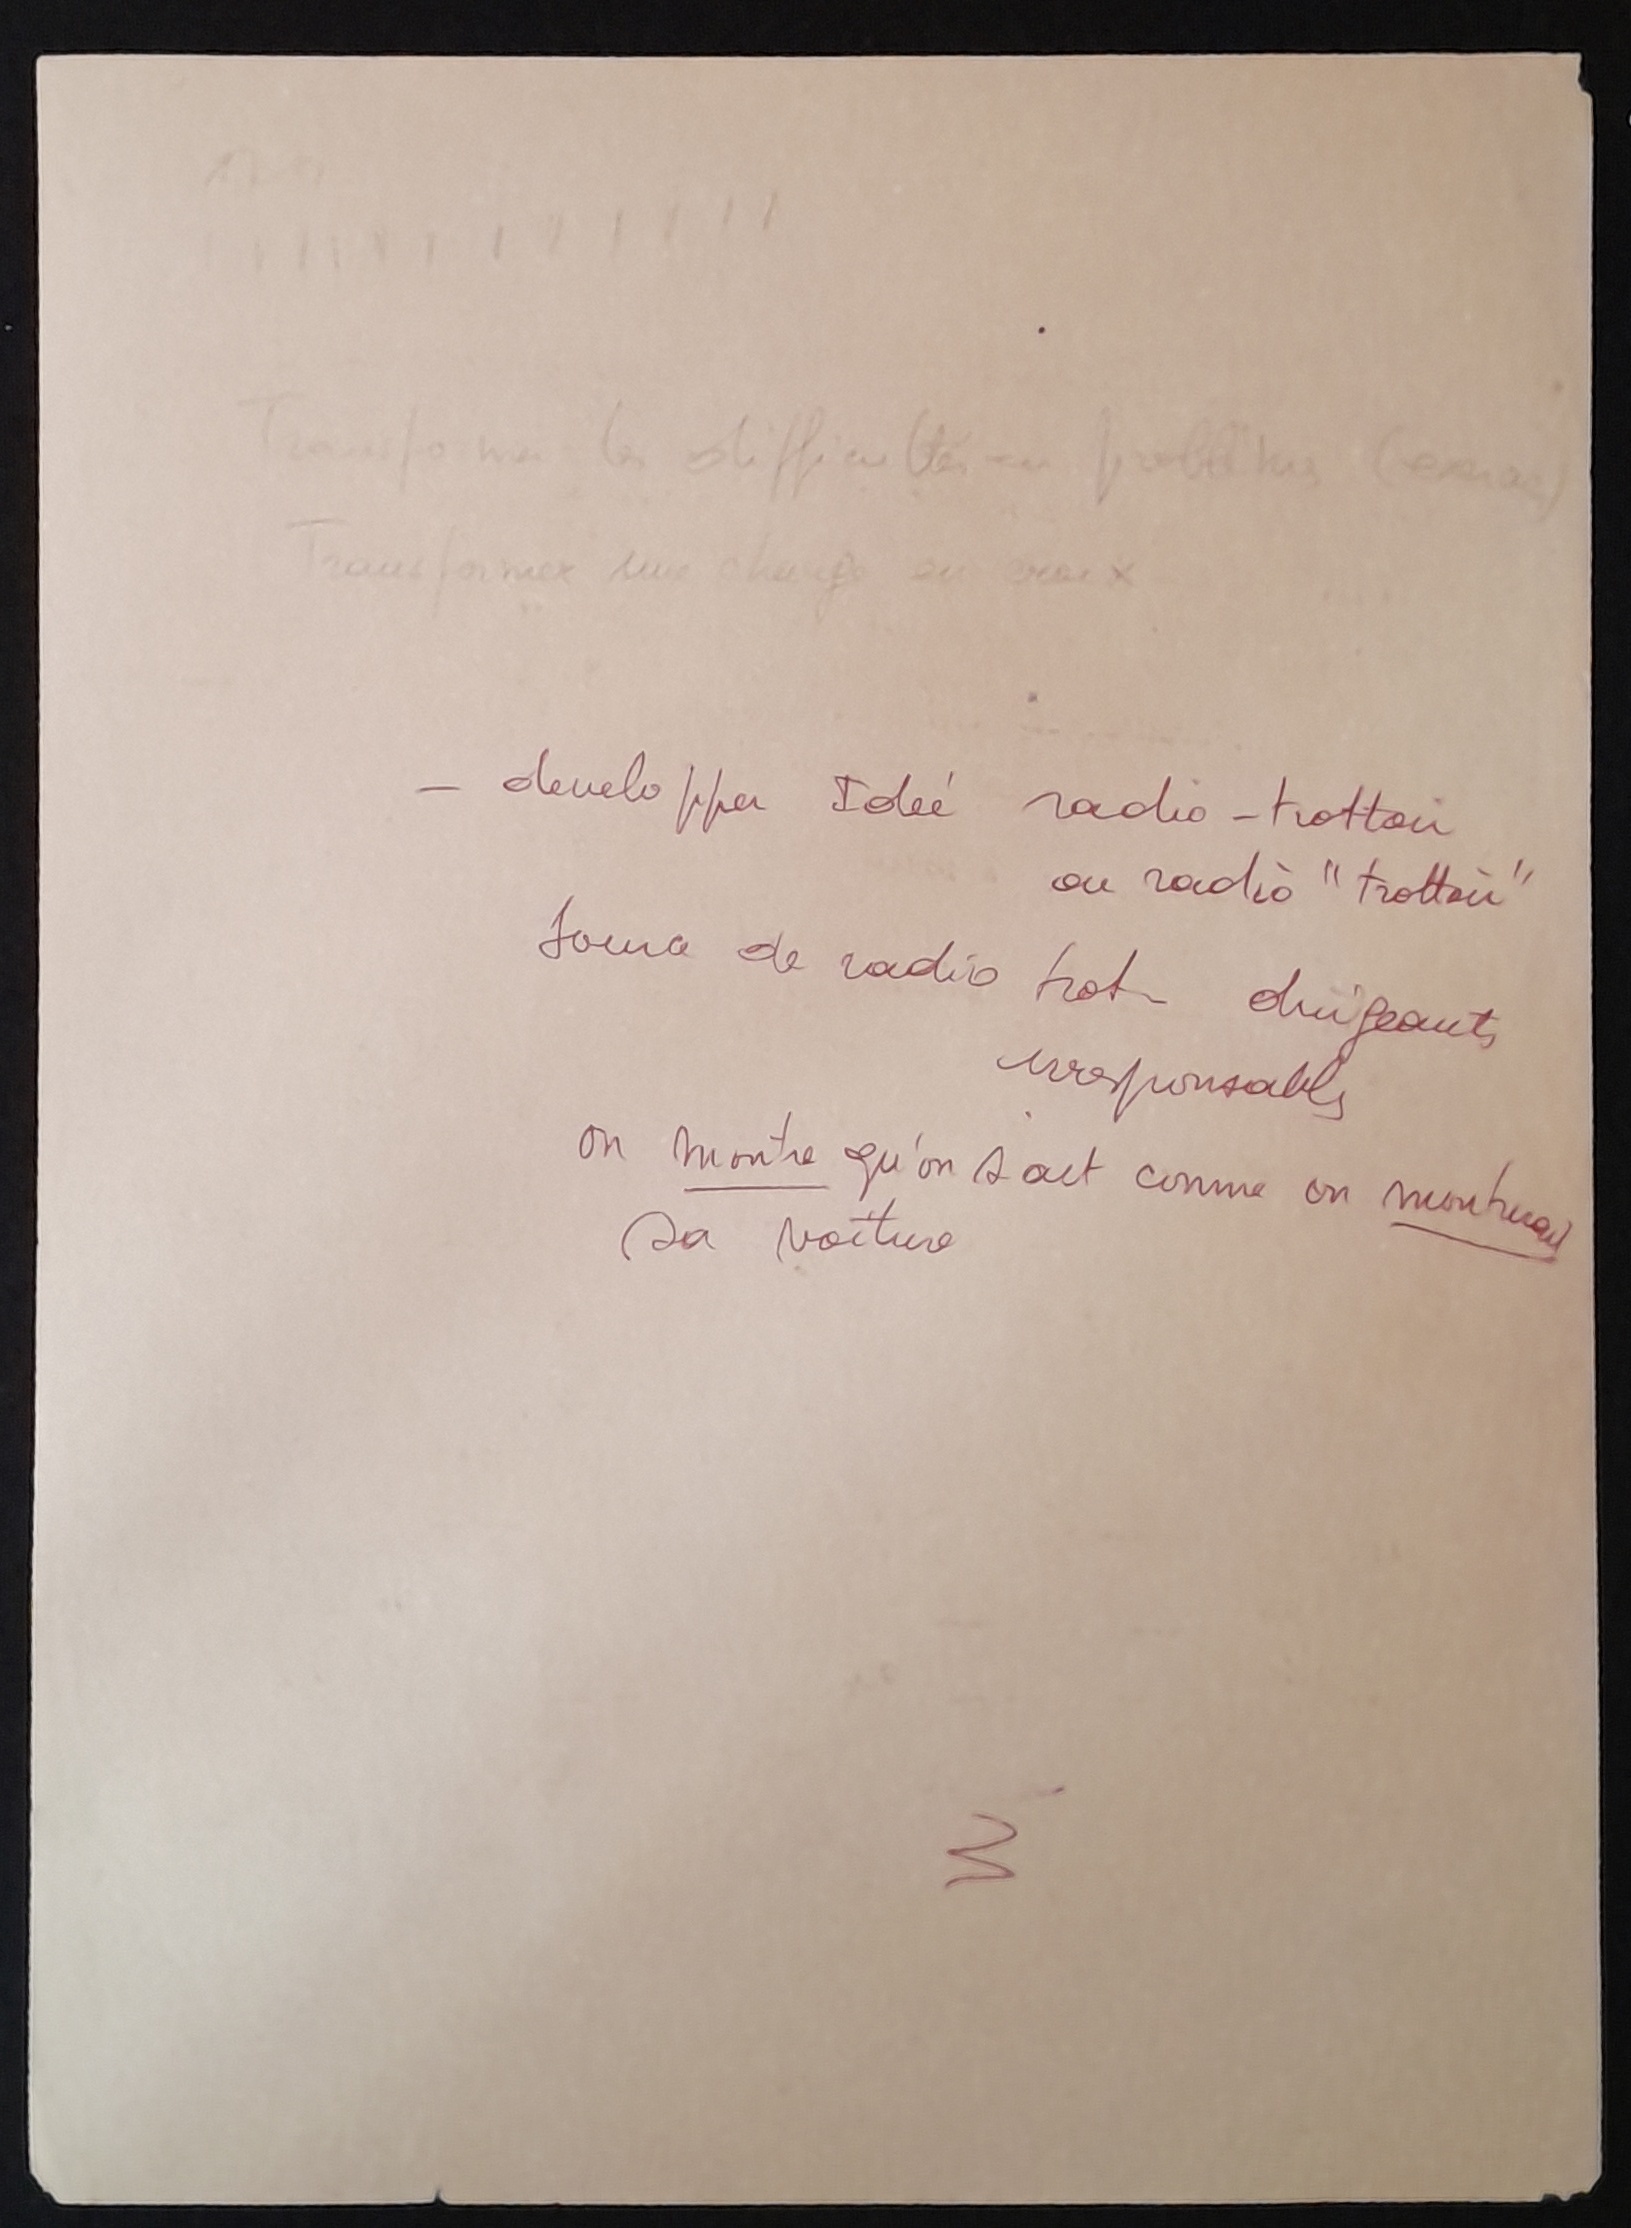 Transformer les difficultés en problèmes
Transformer une charge en creux
– developper Idée radio-trottoir
ou radio "trottoir"
source de radio trot– dirigeants
irresponsables
on montre qu'on sait comme on montrerait
sa voiture